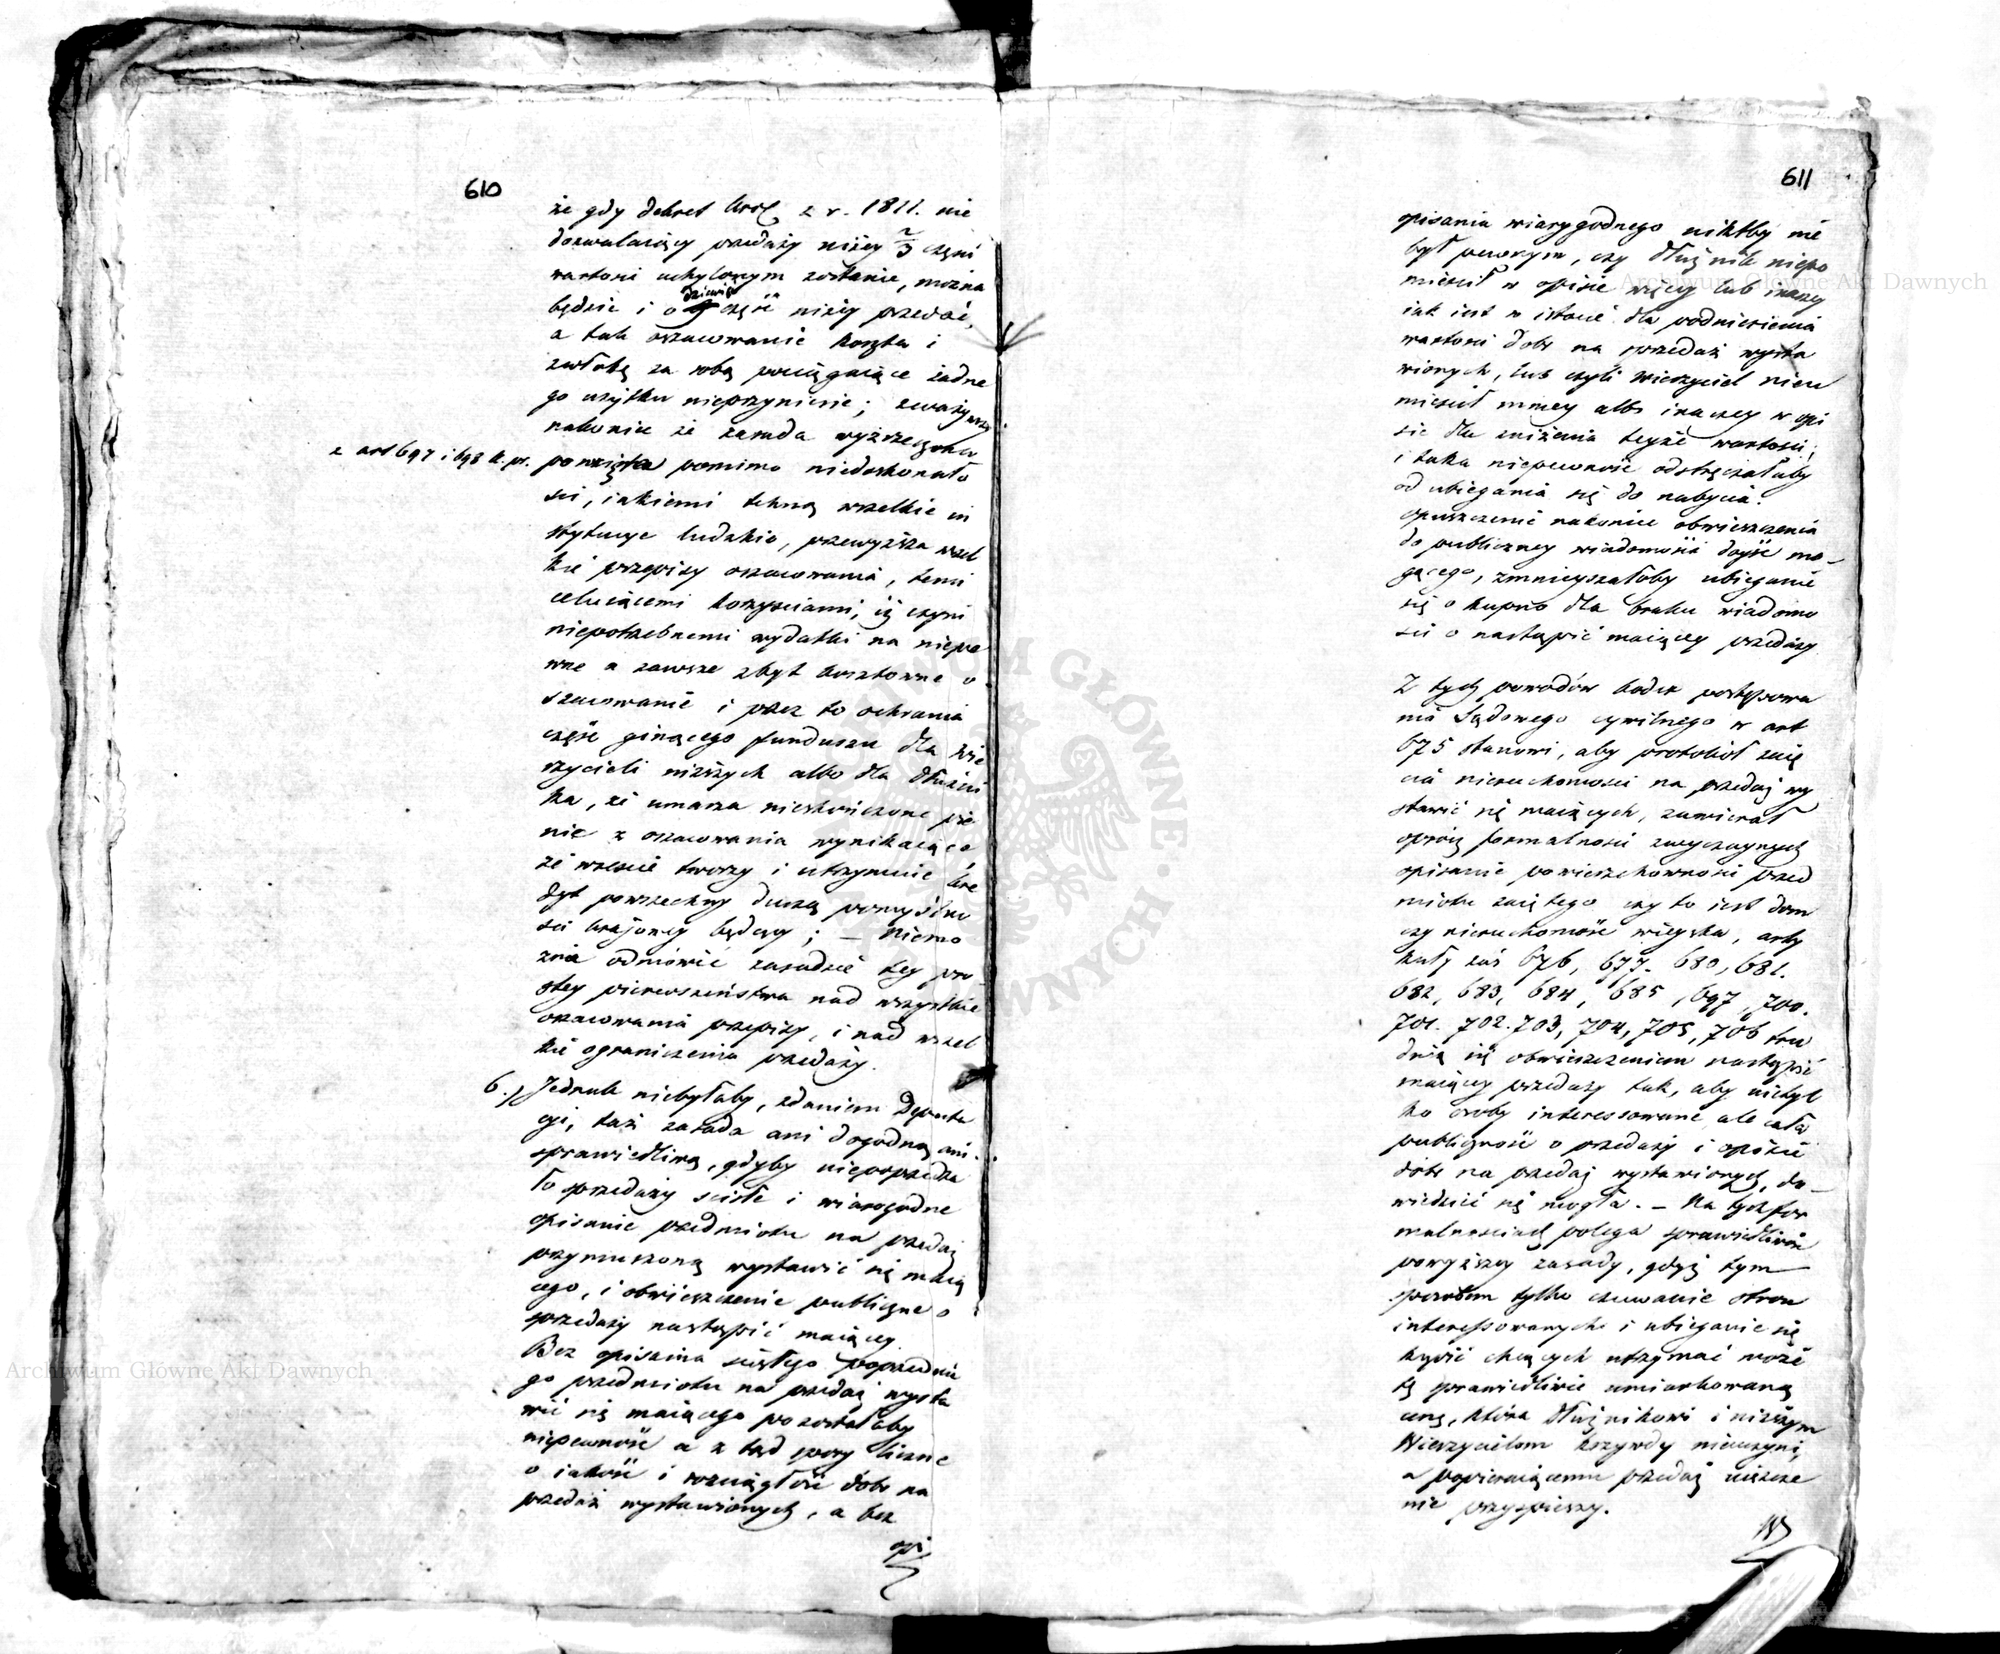 610
że gdy dekret Król. z r. 1811. nie
dozwalaiący przedaży niżey 2/3 części
wartości uchylonym zostanie, można
będzie i o dziewią część niżey przedać,
a tak oszacowanie koszta i
zwłokę za sobą pociągaiące żadne
go użytku nieprzyniesie; zważywszy
nakoniec że zasada wyżrzeczona
z art 697 i 698 k. pr. powzięta pomimo niedoskonało
ści, iakiemi tchną wszelkie in
stytucye ludzkie, przewyższa wszel
kie przepisy oszacowania, temi
celuiącemi korzyściami, iż czyni
niepotrzebnemi wydatki na niepe
wne a zawsze zbyt kosztowne o
szacowanie i przez to ochrania
część ginącego funduszu dla wie
rzycieli niższych albo dla dłużni
ka, że umarza nieskończone pie
nie z oszacowania wynikaiące
że wreszcie tworzy i utrzymuie kre
dyt powszechny duszą pomyślno
ści kraiowey będący; – niemo
żna odmówić zasadzie tey pro
stey pierwszeństwa nad wszystkie
oszacowania przepisy, i nad wszel
kie ograniczenia przedaży.
6.) Jednak niebyłaby, zdaniem Deputa
cyi, taż zasada ani dogodną ani
sprawiedliwą, gdyby niepoprzedza
ło sprzedaży ścisłe i wiarogodne
opisanie przedmiotu na przedaż
przymuszoną wystawić się maią
cego, i obwieszczenie publiczne o
sprzedaży nastąpić maiącey.
Bez opisania ścisłego poprzednie
go przedmiotu na przedaż wysta
wić się maiącego pozostałaby
niepewność a z tąd spory liczne
o iakość i rozciągłość dóbr na
przedaż wystawionych, a bez
opi
611
opisania wiarygodnego niktby nie
był pewnym, czy dłużnik niepo
mieścił w opisie więcey lub inaczey
iak iest w istocie dla podniesienia
wartości dóbr na sprzedaż wysta
wionych, lub czyli wierzyciel nieu
mieścił mniey albo inaczey w opi
sie dla zniżenia teyże wartości;
i taka niepewność odstręczałaby
od ubiegania się do nabycia.
opuszczenie nakoniec obwieszczenia
do publiczney wiadomości doyść mo-
gącego, zmnieyszałoby ubieganie
się o kupno dla braku wiadomo
ści o nastąpić maiącey przedaży
Z tych powodów kodex postępowa
nia Sądowego cywilnego w art
675 stanowi, aby protokół zaię
cia nieruchomości na przedaż wy
stawić się maiących, zawierał
oprócz formalności zwyczaynych
opisanie powierzchowności przed
miotu zaiętego czy to iest dom
czy nieruchomość wieyska, arty
kuły zaś 676, 677. 680, 681.
682, 683, 684, 685, 697, 700.
701. 702. 703, 704, 705, 706 tru
dnią się obwieszczeniem nastąpić
maiącey przedaży tak, aby nietyl
ko osoby interessowane ale cała
publiczność o przedaży i opisie
dóbr na przedaż wystawionych, do-
wiedzieć się mogła. – Na tych for
malnościach polega sprawiedliwość
powyższey zasady, gdyż tym
sposobem tylko czuwanie stron
interessowanych i ubieganie się
kupić chcących utrzymać może
tę sprawiedliwie umiarkowaną
cenę, która dłużnikowi i niższym
Wierzycielom krzywdy nieuczyni,
a popieraiącemu przedaż uiszcze
nie przyspieszy.